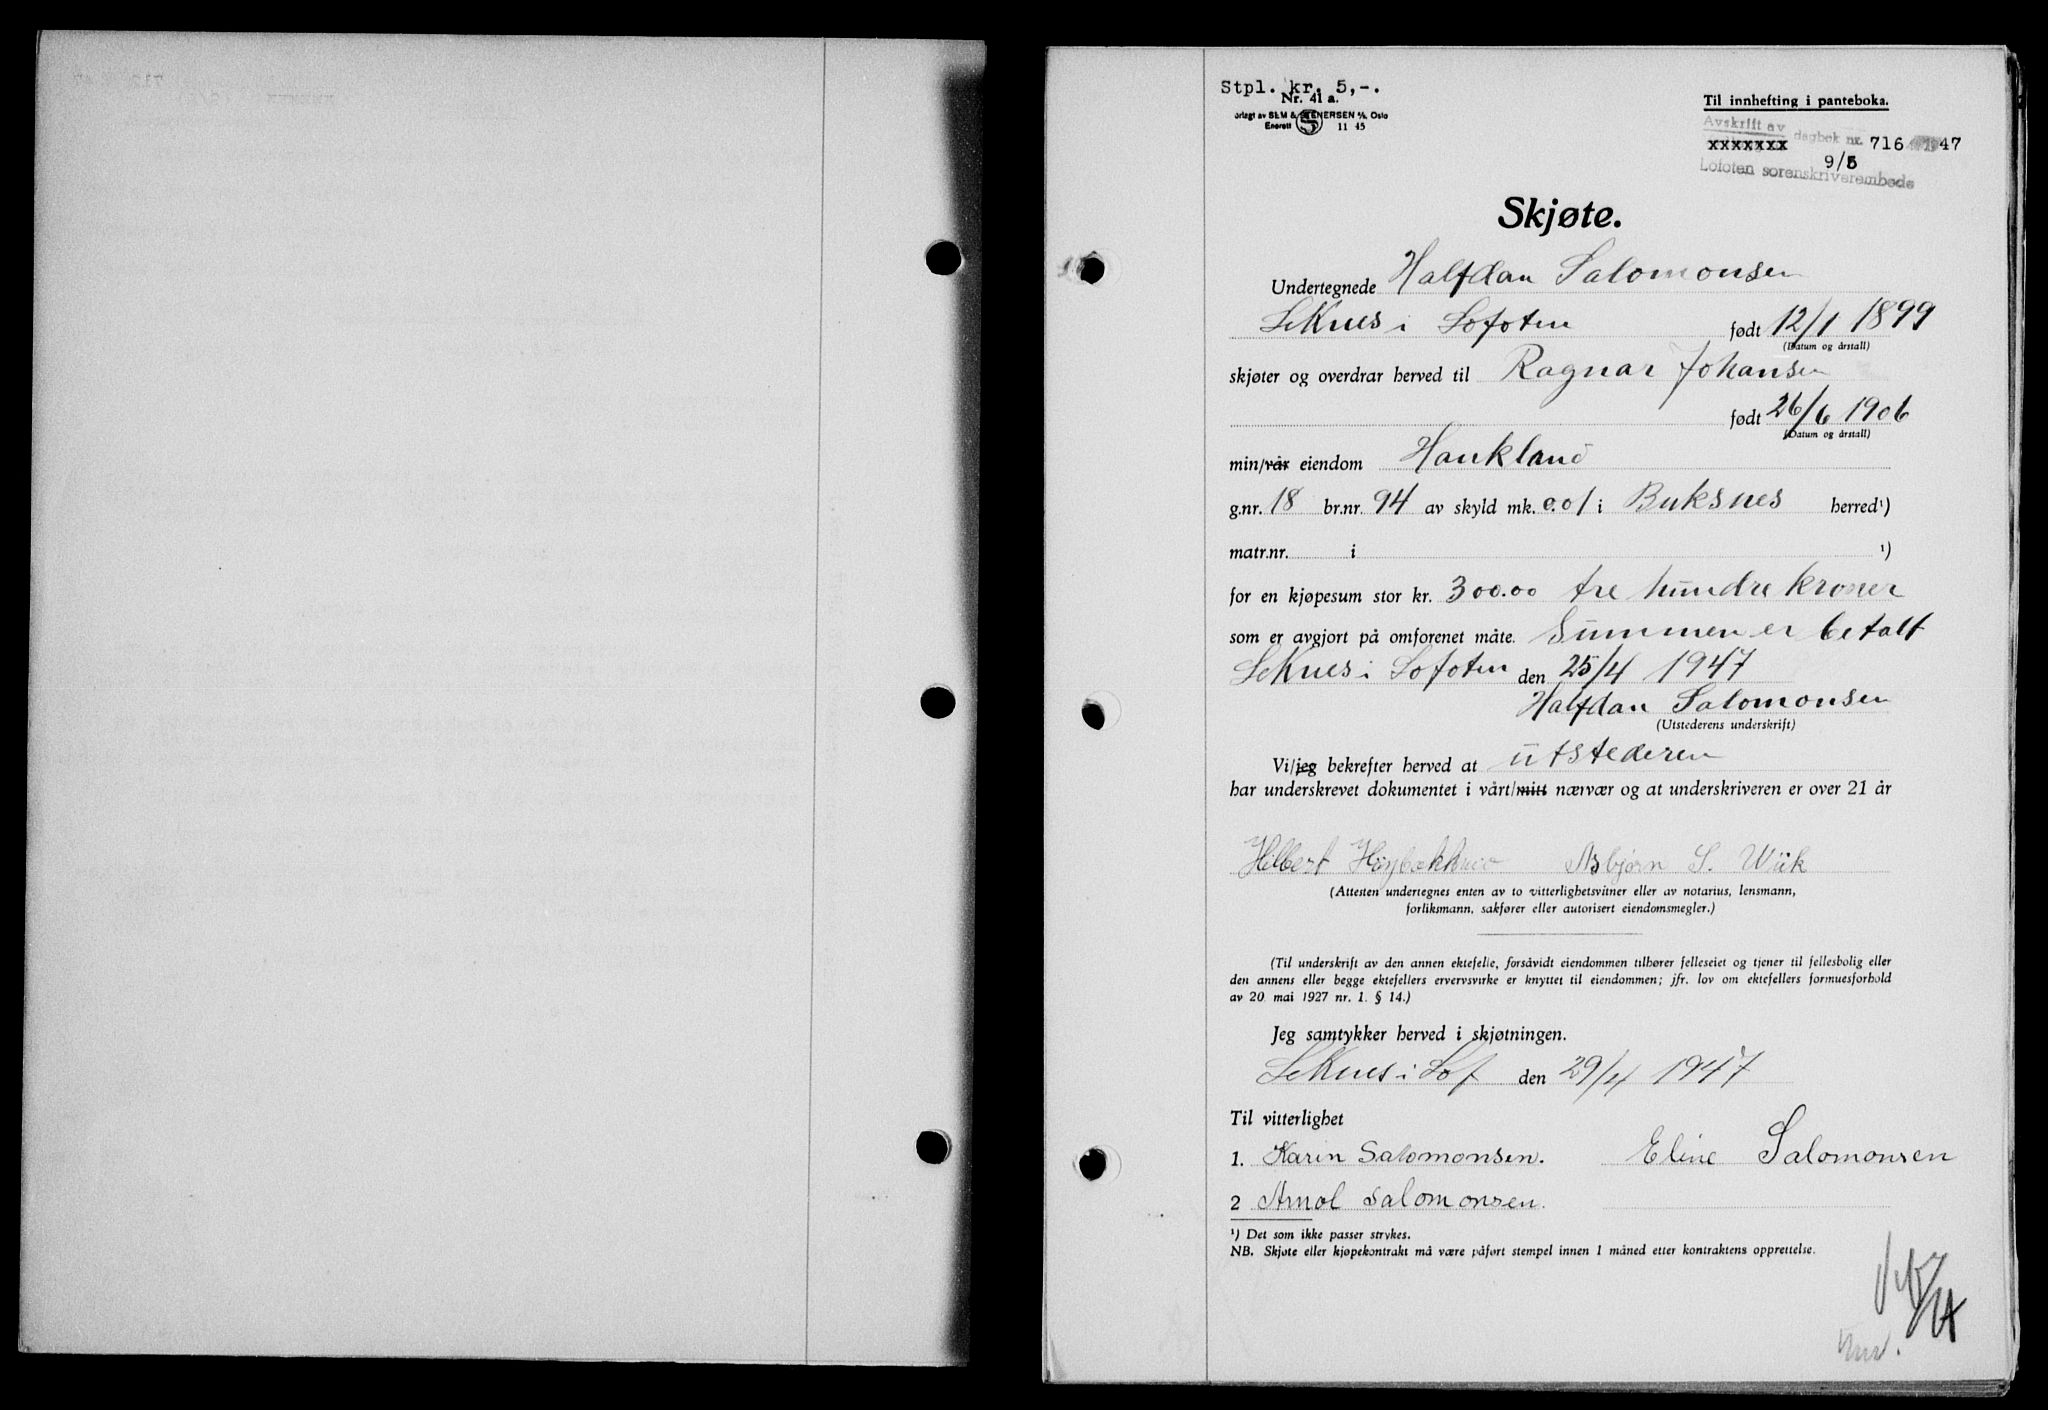 Stpl. kr. 5,-.
Nr. 41 a.
orlagt av SEM & STENERSEN A/S, Oslo
Enerett S 11 45
Til innhefting i panteboka.
Avskrift av
xxxxxxx dagbok nr. 716 47
9/5
Lofoten sorenskriverembede
Skjøte.
Undertegnede Halfdan Salomonsen
Leknes i Lofoten født 12/1 1899
(Datum og årstall)
skjøter og overdrar herved til Ragnar Johansen
født 26/6 1906
(Datum og årstall)
min/vår eiendom Haukland
g.nr. 18 br.nr. 94 av skyld mk. 0.01 i Buksnes herred¹)
matr.nr. i ¹)
for en kjøpesum stor kr. 300.00 tre hundre kroner
som er avgjort på omforenet måte. Summen er betalt
Leknes i Lofoten den 25/4 1947
Halfdan Salomonsen
(Utstederens underskrift)
Vi/jeg bekrefter herved at utstederen
har underskrevet dokumentet i vårt/mitt nærvær og at underskriveren er over 21 år
Hilbert Asbjørn S. Wiik
(Attesten undertegnes enten av to vitterlighetsvitner eller av notarius, lensmann,
forliksmann, sakfører eller autorisert eiendomsmegler.)
(Til underskrift av den annen ektefelle, forsåvidt eiendommen tilhører felleseiet og tjener til fellesbolig eller
den annens eller begge ektefellers ervervsvirke er knyttet til eiendommen; jfr. lov om ektefellers formuesforhold
av 20 mai 1927 nr. 1. § 14.)
Jeg samtykker herved i skjøtningen.
Leknes i Lof den 29/4 1947
Til vitterlighet
1. Karin Salomonsen. Eline Salomonsen
2 Arnol Salomonsen.
¹) Det som ikke passer strykes.
NB. Skjøte eller kjøpekontrakt må være påført stempel innen 1 måned etter kontraktens opprettelse.